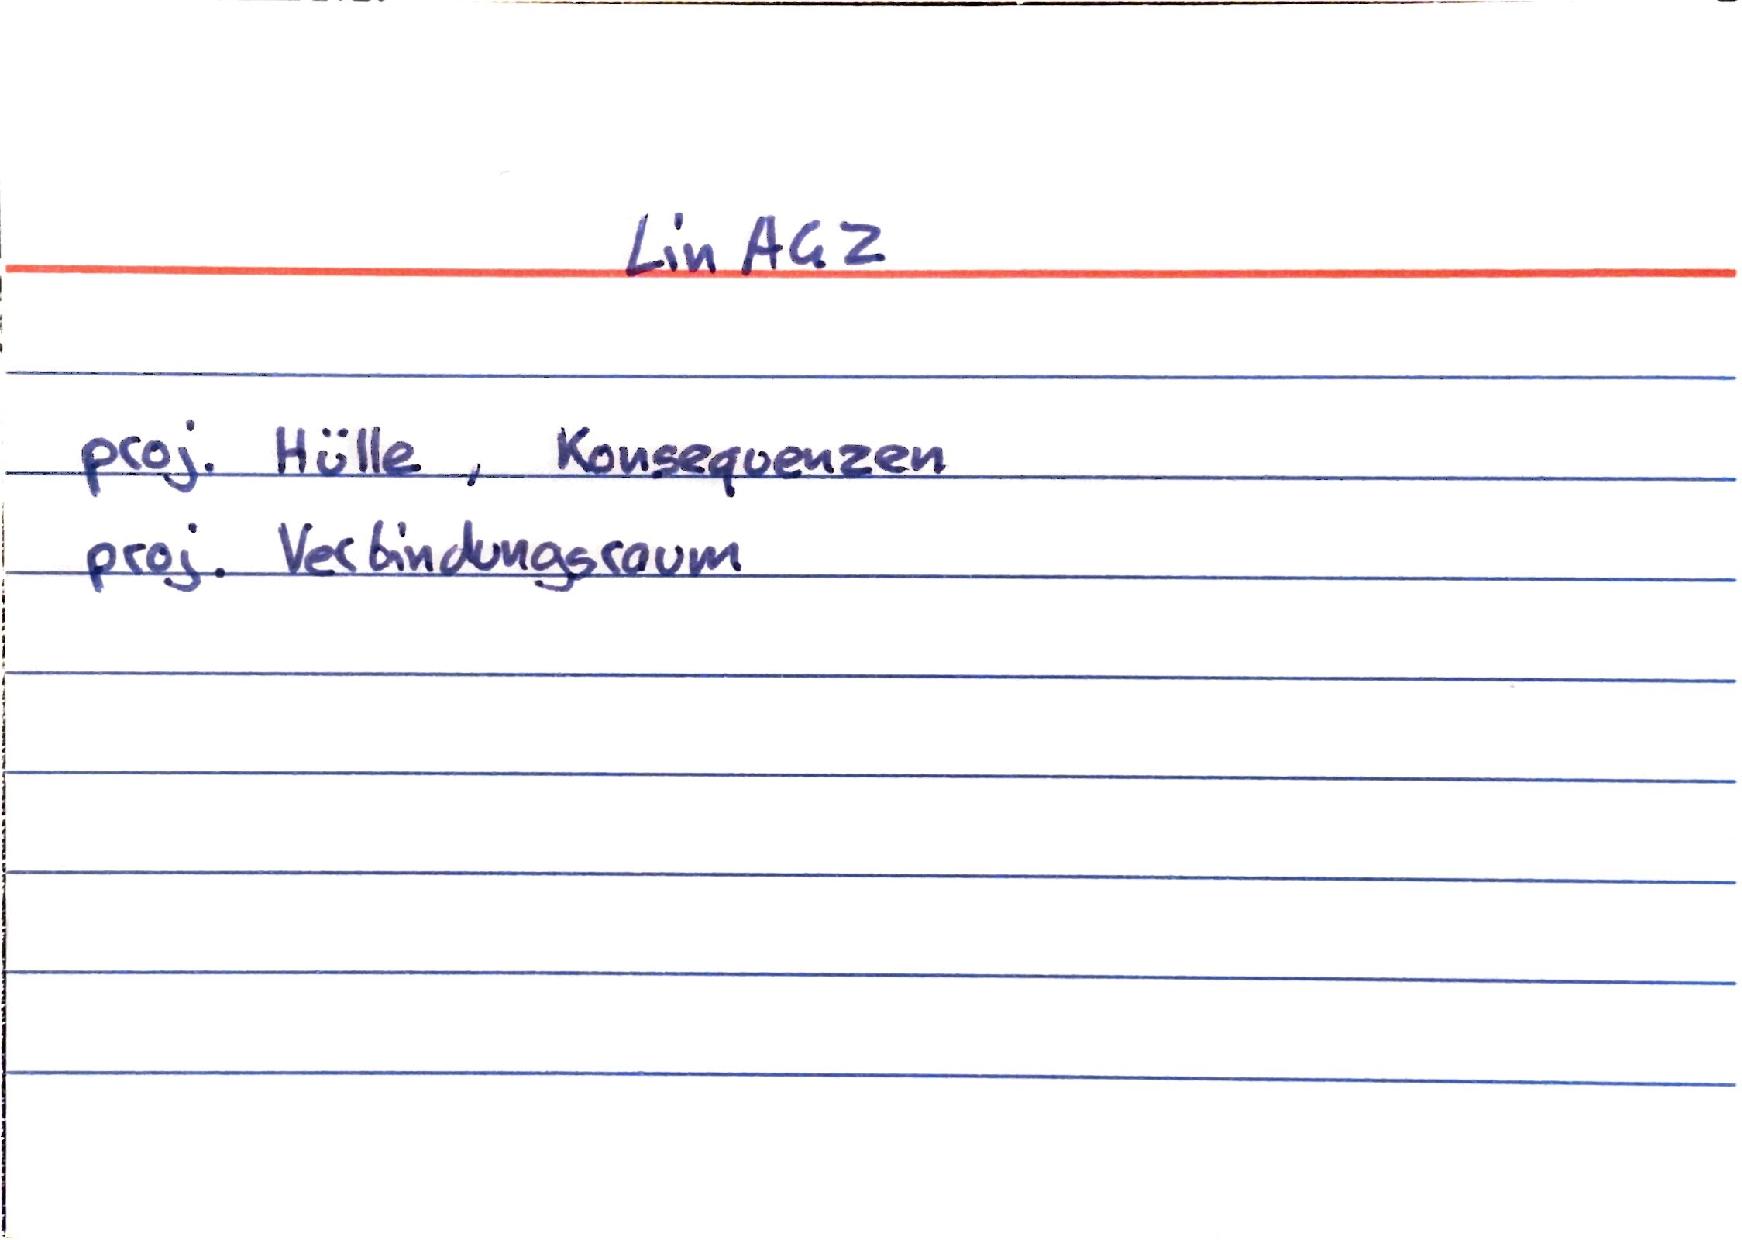 Lin AG 2
proj. Hülle, Konsequenzen
proj. Verbindungsraum